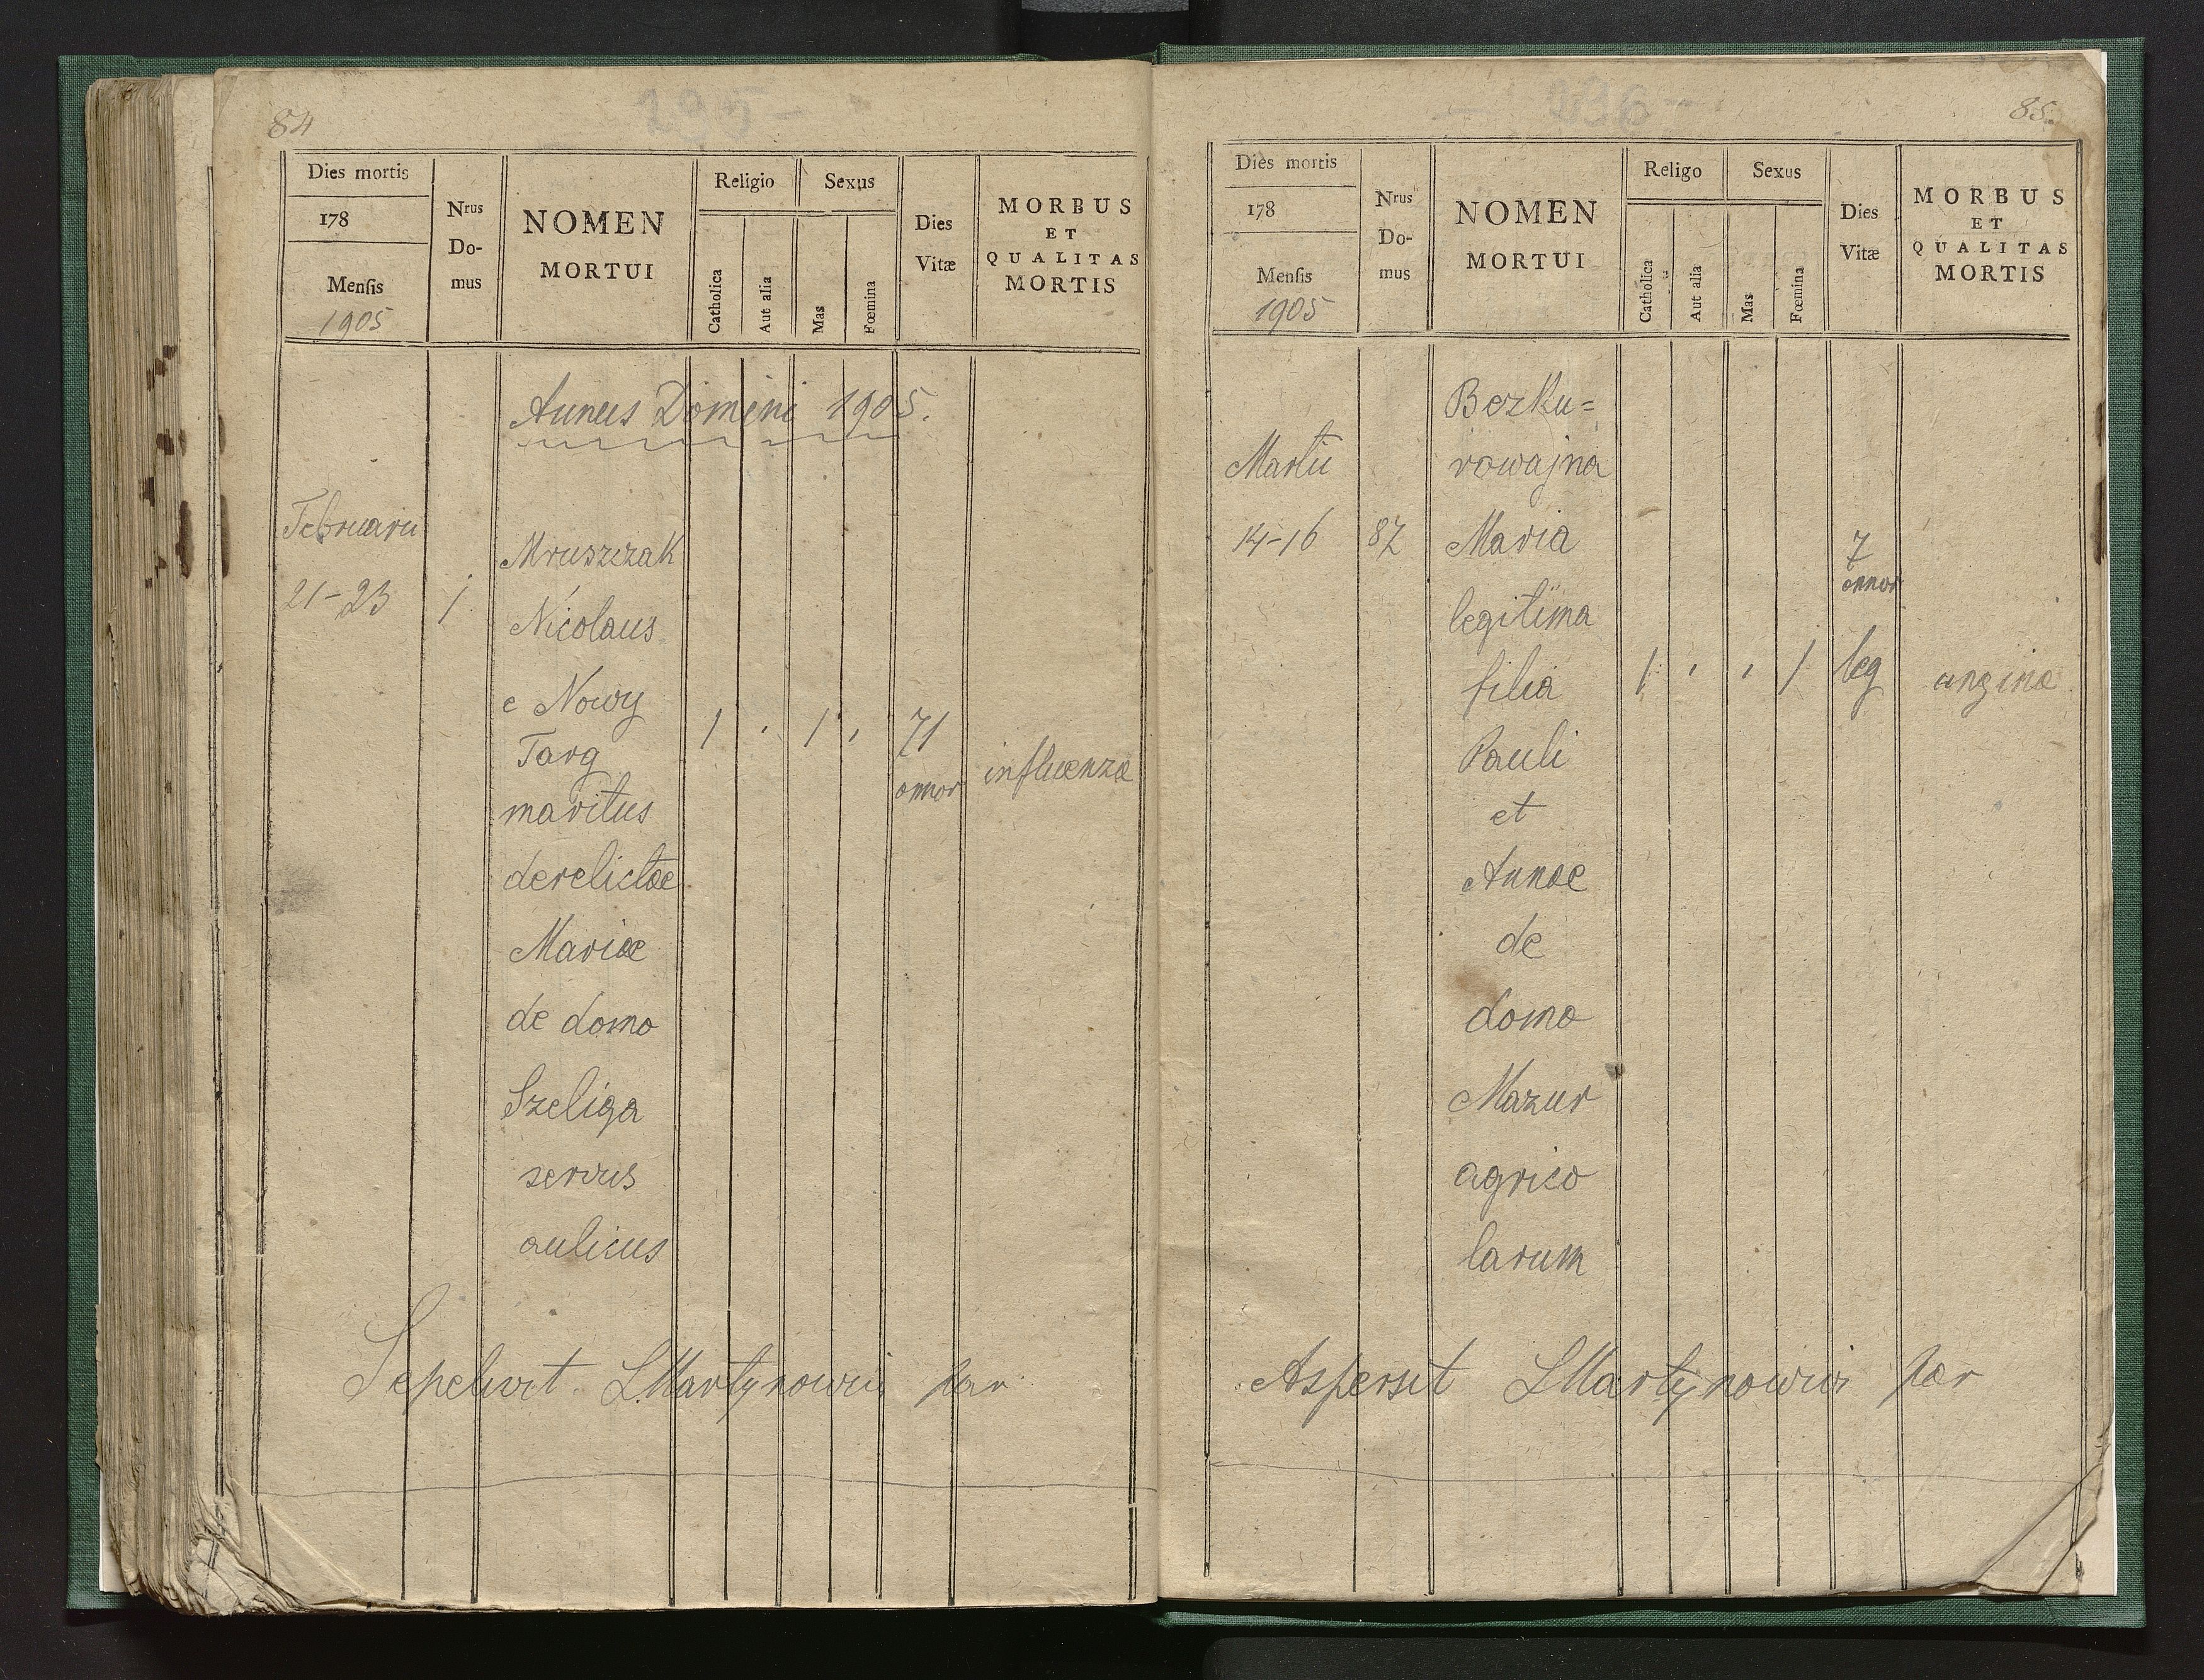 84
195-
Dies mortis
178
Mensis
1905
Nrus
Do-
mus
NOMEN
MORTUI
Religio
Catholica
Aut alia
Sexus
Mas
Fœmina
Dies
Vitæ
MORBUS
ET
QUALITAS
MORTIS
Annus Domini 1905.
Februarii
21-23
1
Mruszczak
Nicolaus
e Nowy
Targ
maritus
derelictae
Mariae
de domo
Szeliga
servus
aulicus
1 , 1 ,
71
annor
influenza
Sepelivit LMartynowicz par
85.
- 196 -
Dies mortis
178
Mensis
1905
Nrus
Do-
mus
NOMEN
MORTUI
Religo
Catholica
Aut alia
Sexus
Mas
Fœmina
Dies
Vitæ
MORBUS
ET
QUALITAS
MORTIS
Martii
14-16
87
Bezku=
rowajna
Maria
legitima
filia
Pauli
et
Annae
de
domo
Mazur
agrico
larum
1 , , 1
7
annor
leg
angina
Aspersit LMartynowicz par